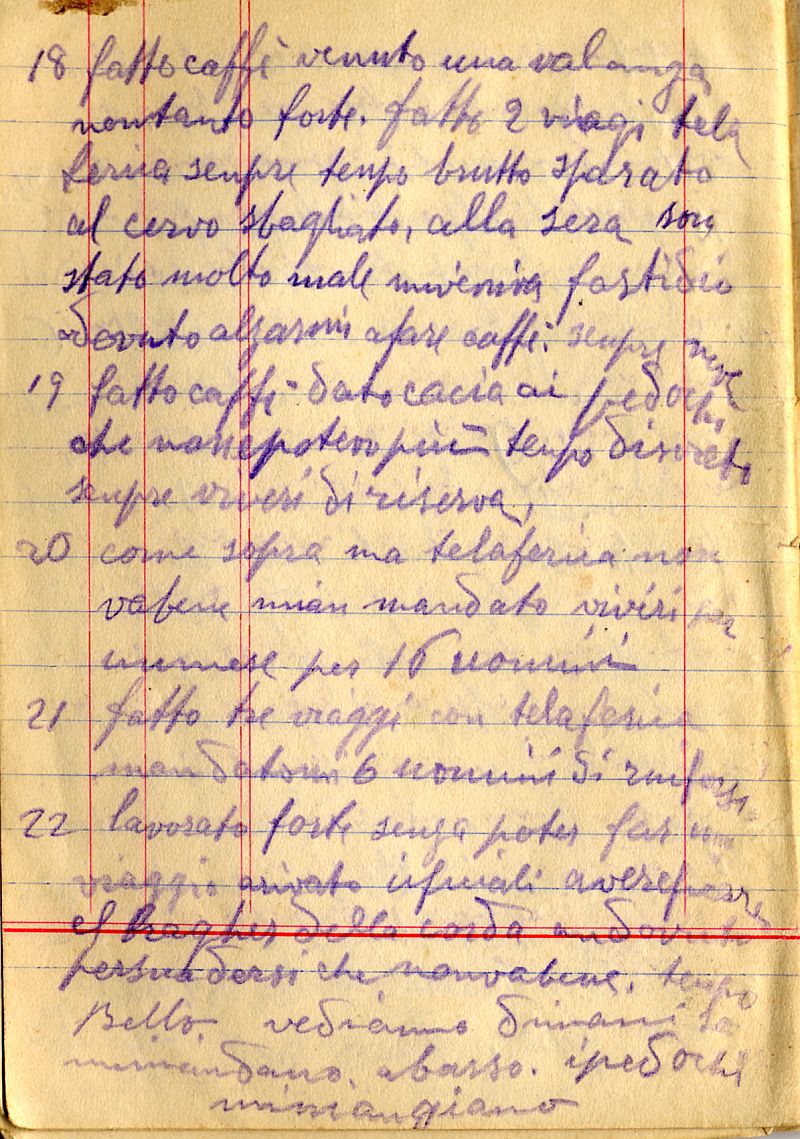 18 fatto caffè venuto una valanga
non tanto forte. fatto 2 viagi tela
ferica senpre tenpo brutto sparato
al cervo sbagliato, alla sera son
stato molto male miveniva fastidio
devuto alzarmi afare caffè. senpre neve
19 fatto caffè dato cacia ai pedochi
che nonsepotevo più tenpo discreto
senpre viveri di riserva,
20 come sopra ma telaferica non
vabene mian mandato viviri per
unmese per 16 uomini
21 fatto tre viaggi con telaferica
mandatomi 6 uomini di rinforso
22 lavorato forte senza poter far un
viaggio arivato uficiali
el della corda andovuto
persuadersi che nonvabene. tenpo
Bello. vediamo dimani se
mimandano. abasso. ipedochi
mimangiano